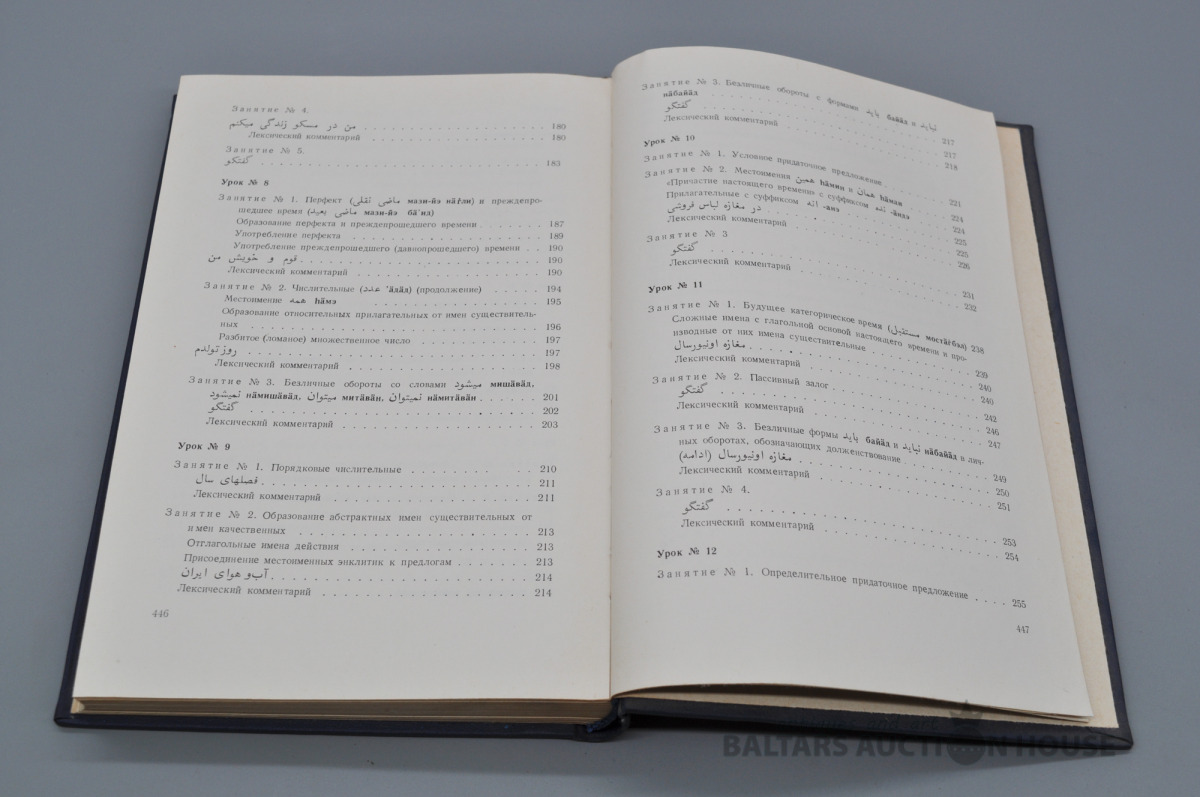 Занятие № 4.
من در مسکو زندگی میکنم . . . . . 180
Лексический комментарий . . . . . 180
Занятие № 5.
گفتگو . . . . . 183
Урок № 8
Занятие № 1. Перфект (ماضی نقلی мази-йэ нäӷли) и преждепро-
шедшее время (ماضی بعید мази-йэ бä'ид)
Образование перфекта и преждепрошедшего времени . . . . . 187
Употребление перфекта . . . . . 189
Употребление преждепрошедшего (давнопрошедшего) времени . . 190
قوم و خویش من . . . . . 190
Лексический комментарий . . . . . 190
Занятие № 2. Числительные (عدد 'äдäд) (продолжение) . . . . . 194
Местоимение همه häмэ . . . . . 195
Образование относительных прилагательных от имен существитель-
ных . . . . . 196
Разбитое (ломаное) множественное число . . . . . 197
روز تولدم . . . . . 197
Лексический комментарий . . . . . 198
Занятие № 3. Безличные обороты со словами میشود мишäвäд,
نمیشود нäмишäвäд, میتوان митäвāн, نمیتوان нäмитäвāн . . . . . 201
گفتگو . . . . . 202
Лексический комментарий . . . . . 203
Урок № 9
Занятие № 1. Порядковые числительные . . . . . 210
فصلهای سال . . . . . 211
Лексический комментарий . . . . . 211
Занятие № 2. Образование абстрактных имен существительных от
имен качественных . . . . . 213
Отглагольные имена действия . . . . . 213
Присоединение местоименных энклитик к предлогам . . . . . 213
آب و هوای ایران . . . . . 214
Лексический комментарий . . . . . 214
446
Занятие № 3. Безличные обороты с формами باید байäд и نباید
нäбайäд . . . . . 217
گفتگو . . . . . 217
Лексический комментарий . . . . . 218
Урок № 10
Занятие № 1. Условное придаточное предложение . . . . . 221
Занятие № 2. Местоимения همین häмин и همان häман . . . . . 224
«Причастие настоящего времени» с суффиксом نده -äндэ . . . . . 224
Прилагательные с суффиксом انه -анэ . . . . . 225
در مغازه لباس فروشی . . . . . 225
Лексический комментарий . . . . . 226
Занятие № 3
گفتگو . . . . . 231
Лексический комментарий . . . . . 232
Урок № 11
Занятие № 1. Будущее категорическое время (مستقبل мостäӷбэл) 238
Сложные имена с глагольной основой настоящего времени и про-
изводные от них имена существительные . . . . . 239
مغازه اونیورسال . . . . . 240
Лексический комментарий . . . . . 240
Занятие № 2. Пассивный залог . . . . . 242
گفتگو . . . . . 246
Лексический комментарий . . . . . 247
Занятие № 3. Безличные формы باید байäд и نباید нäбайäд в лич-
ных оборотах, обозначающих долженствование . . . . . 249
مغازه اونیورسال (ادامه) . . . . . 250
Лексический комментарий . . . . . 251
Занятие № 4.
گفتگو . . . . . 253
Лексический комментарий . . . . . 254
Урок № 12
Занятие № 1. Определительное придаточное предложение . . . . 255
447
BALTARS AUCTION HOUSE